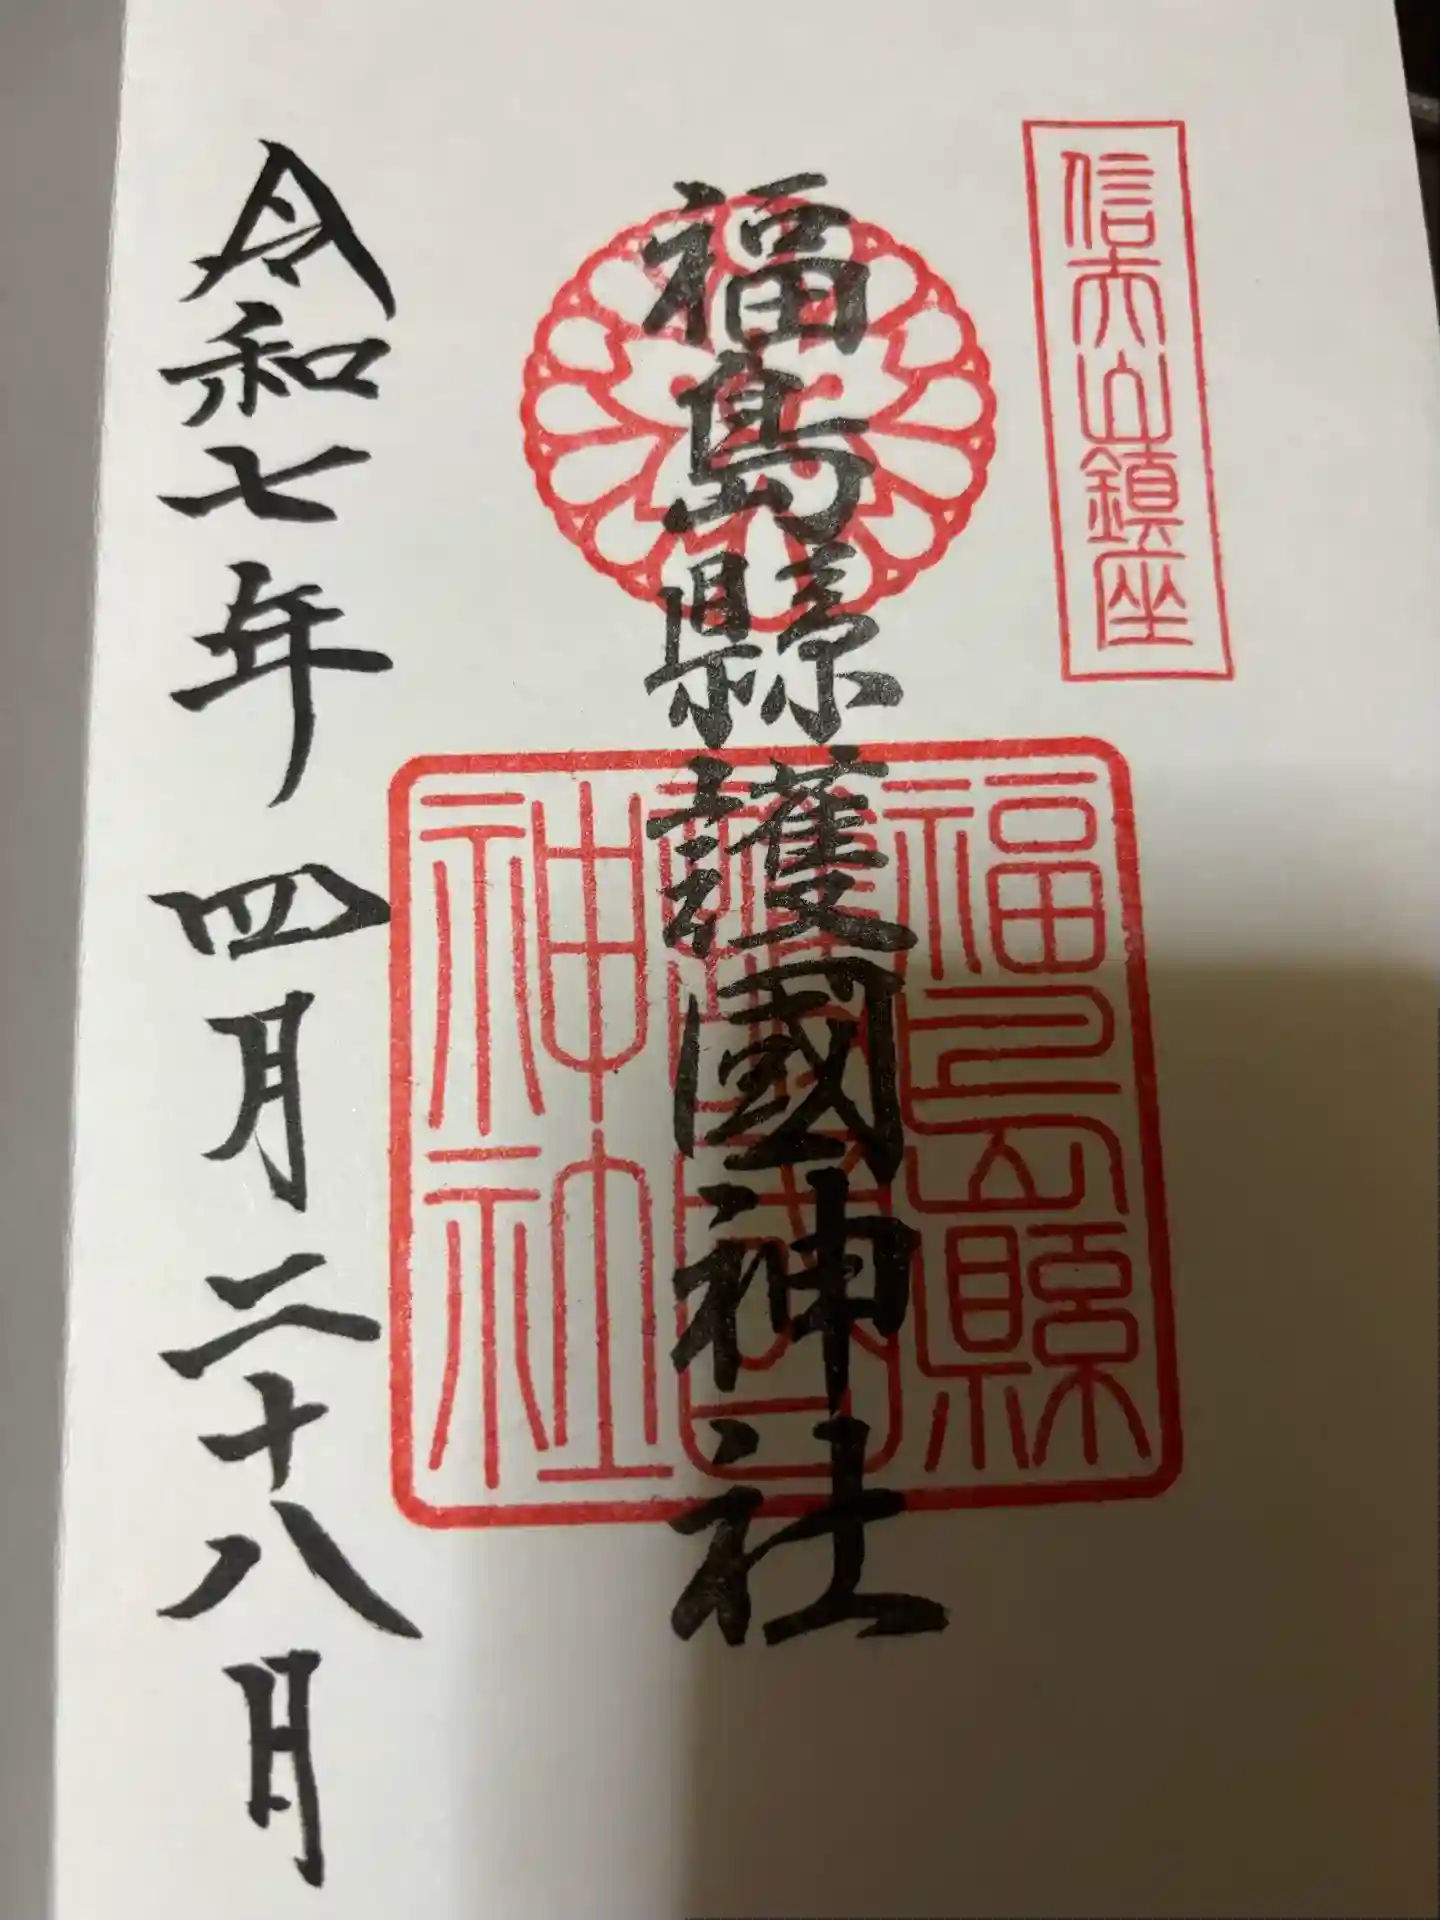 信夫山鎮座
福島縣護國神社
福島縣
護國
神社
令和七年 四月 二十八日